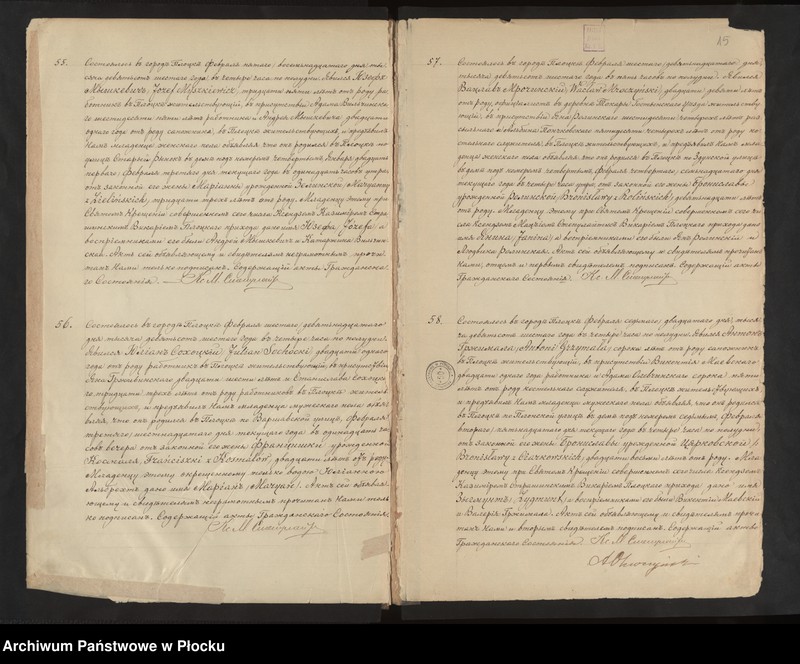 55.
Состоялось въ городѣ Плоцкѣ Февраля пятаго, восемнадцатаго дня, ты-
сяча девятьсотъ шестаго года, въ четыре часа по полудни. Явился Юзефъ
Мышкевичъ, Józef Myszkiewicz, тридцати пяти лѣтъ отъ роду ра-
ботникъ въ Плоцкѣ жительствующій, въ присутствіи Адама
шестидесяти пяти лѣтъ работника и Андрея Мышкевича двадцати
одного года отъ роду сапожника, въ Плоцкѣ жительствующихъ, и предъявилъ
Намъ младенца женскаго пола объявляя что онъ родился въ Плоцкѣ по
улицѣ Старый Рынокъ въ домѣ подъ номеромъ четвертымъ Января двадцать
перваго, Февраля третьяго дня текущаго года въ одинадцать часовъ утра
отъ законной его жены Маріанны урожденной Зелинской, Maryanny
z Zielińskich, тридцати трехъ лѣтъ отъ роду. Младенцу этому при
Святомъ Крещеніи совершенномъ сего числа Ксендзомъ Казиміромъ Стра-
Викаріемъ Плоцкаго прихода дано имя Юзефа, Józefa, а
воспріемниками его были Андрей Мышкевичъ и Катаржина
Актъ сей объявляющему и свидѣтелямъ неграмотнымъ прочи-
танъ Нами только подписанъ. Содержащій акты Гражданска-
го Состоянія. Кс. М.
56.
Состоялось въ городѣ Плоцкѣ Февраля шестаго, девятнадцатаго
дня тысяча девятьсотъ шестаго года въ четыре часа по полудни.
Явился Юліанъ Сохоцкій, Julian Sochocki, двадцати одного
года отъ роду работникъ въ Плоцкѣ жительствующій, въ присутствіи
Яна двадцати шести лѣтъ и Станислава Сохоцка-
го тридцати трехъ лѣтъ отъ роду работниковъ въ Плоцкѣ житель-
ствующихъ, и предъявилъ Намъ младенца мужескаго пола объяв-
ляя, что онъ родился въ Плоцкѣ по Варшавской улицѣ, Февраля
третьяго, шестнадцатаго дня текущаго года въ одинадцать ча-
совъ вечера отъ законной его жены Францишки урожденной
Franciszki z Kosmalów, двадцати лѣтъ отъ роду.
Младенцу этому окрещенному только водою
дано имя Маріанъ, Maryan. Актъ сей объявля-
ющему и свидѣтелямъ неграмотнымъ прочитанъ Нами толь-
ко подписанъ. Содержащій акты Гражданскаго Состоянія.
Кс. М.
15
57.
Состоялось въ городѣ Плоцкѣ Февраля шестаго, девятнадцатаго дня
тысяча девятьсотъ шестаго года въ пять часовъ по полудни. Явился
Вацлавъ Wacław двадцати девяти лѣтъ
отъ роду, въ деревнѣ Токары уѣзда жительствую-
щій, въ присутствіи Яна шестидесяти четырехъ лѣтъ
и пятидесяти четырехъ лѣтъ отъ роду ко-
стельнаго служителя, въ Плоцкѣ жительствующихъ, и предъявилъ Намъ мла-
денца женскаго пола объявляя, что онъ родился въ Плоцкѣ по улицѣ
въ домѣ подъ номеромъ четвертымъ, Февраля четвертаго, семнадцатаго дня
текущаго года въ четыре часа утра отъ законной его жены Брониславы
урожденной Bronisławy z девятнадцати лѣтъ
отъ роду. Младенцу этому при Святомъ Крещеніи совершенномъ сего чи-
сла Ксендзомъ Викаріемъ Плоцкаго прихода дано
имя Янина, Janina, а воспріемниками его были Янъ и
Людвика Актъ сей объявляющему и свидѣтелямъ прочитанъ
Нами, отцемъ и первымъ свидѣтелемъ подписанъ. Содержащій акты
Гражданскаго Состоянія. Кс. М.
58.
Состоялось въ городѣ Плоцкѣ Февраля седьмаго, двадцатаго дня, тыся-
ча девятьсотъ шестаго года въ четыре часа по полудни. Явился Антонъ
Гржималя, Antoni Grzymała, сорока лѣтъ отъ роду сапожникъ
въ Плоцкѣ жительствующій, въ присутствіи Викентія Маевскаго
двадцати одного года работника и Адама сорока пяти
лѣтъ отъ роду костельнаго служителя, въ Плоцкѣ жительствующихъ,
и предъявилъ Намъ младенца мужескаго пола объявляя, что онъ родился
въ Плоцкѣ по улицѣ въ домѣ подъ номеромъ седьмымъ, Февраля
втораго, пятнадцатаго дня текущаго года въ четыре часа по полудни
отъ законной его жены Брониславы урожденной Цярковской,
Bronisławy z двадцати восьми лѣтъ отъ роду. Мла-
денцу этому при Святомъ Крещеніи совершенномъ сего числа Ксендзомъ
Казиміромъ Викаріемъ Плоцкаго прихода дано имя
Зыгмунтъ, Zygmunt, а воспріемниками его были Викентій Маевскій
и Валерія Гржималя. Актъ сей объявляющему и свидѣтелямъ прочи-
танъ Нами и вторымъ свидѣтелемъ подписанъ. Содержащій акты
Гражданскаго Состоянія. Кс. М.
Archiwum Państwowe w Płocku